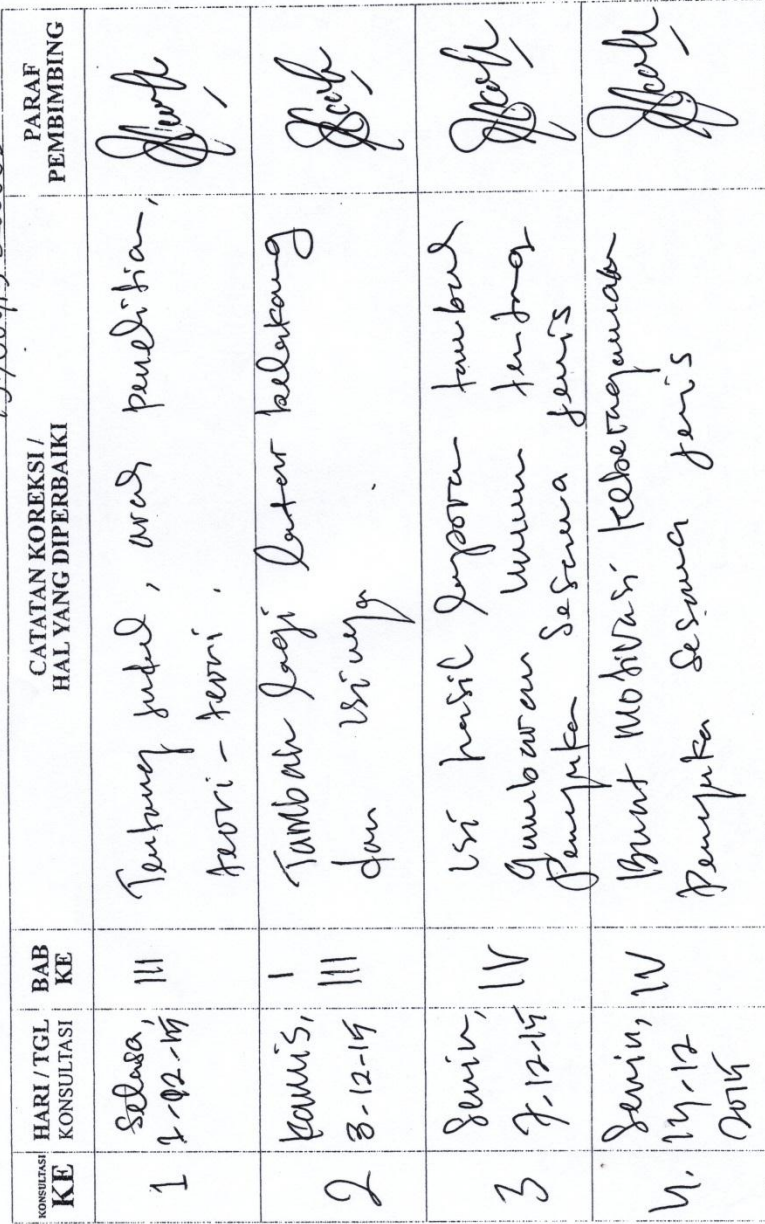 KONSULTASI
KE
HARI / TGL
KONSULTASI
BAB
KE
CATATAN KOREKSI /
HAL YANG DIPERBAIKI
PARAF
PEMBIMBING
1
Selasa,
1-12-15
III
Tentang judul, arah penelitian,
teori-teori.
2
Kamis,
3-12-15
I
III
Tambah lagi latar belakang
dan isinya
3
Senin,
7-12-15
IV
isi hasil laporan tambah
gambaran umum tentang
penyuka sesama jenis
4.
Senin,
14-12
2015
IV
Buat motivasi keberagamaan
penyuka sesama jenis